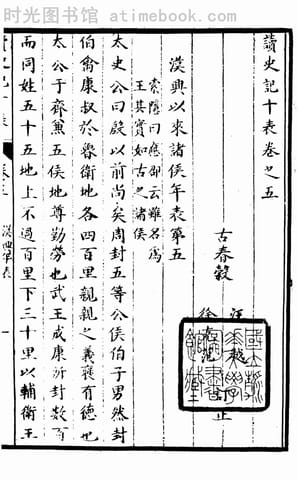 时光图书馆 - atimebook.com
讀史記十表卷之五
古春穀
汪
越
徐
漢興以來諸侯年表第五
索隱曰應卲云雖名為
王其實如古之諸侯
太史公曰殷以前尚矣周封五等公侯伯子男然封
伯禽康叔於魯衛地各四百里親親之義襃有德也
太公于齊兼五侯地尊勤勞也武王成康所封數百
而同姓五十五地上不過百里下三十里以輔衛王